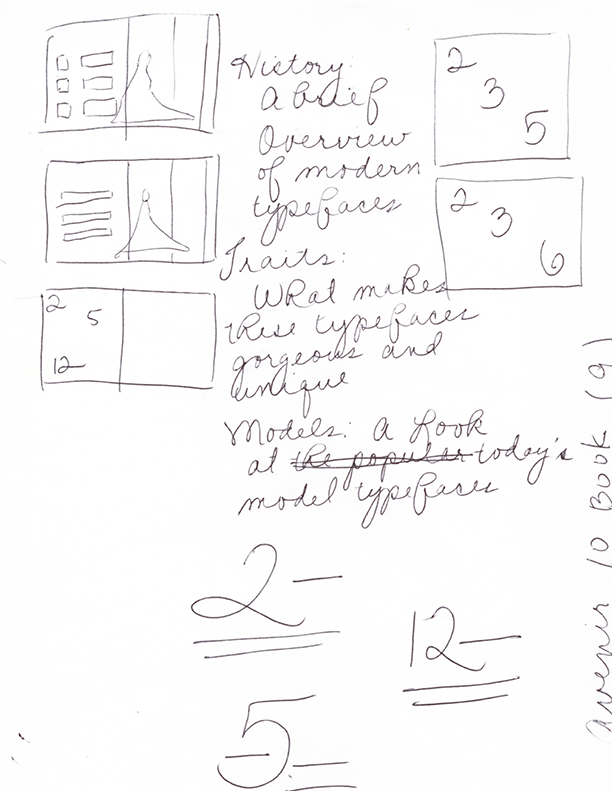 History:
A brief
Overview
of modern
typefaces
Traits:
What makes
these typefaces
gorgeous and
unique
Models: A Look
at the popular today's
model typefaces
2
3
5
2
3
6
2
5
12
2—
12—
5—
Avenir 10 Book (9)